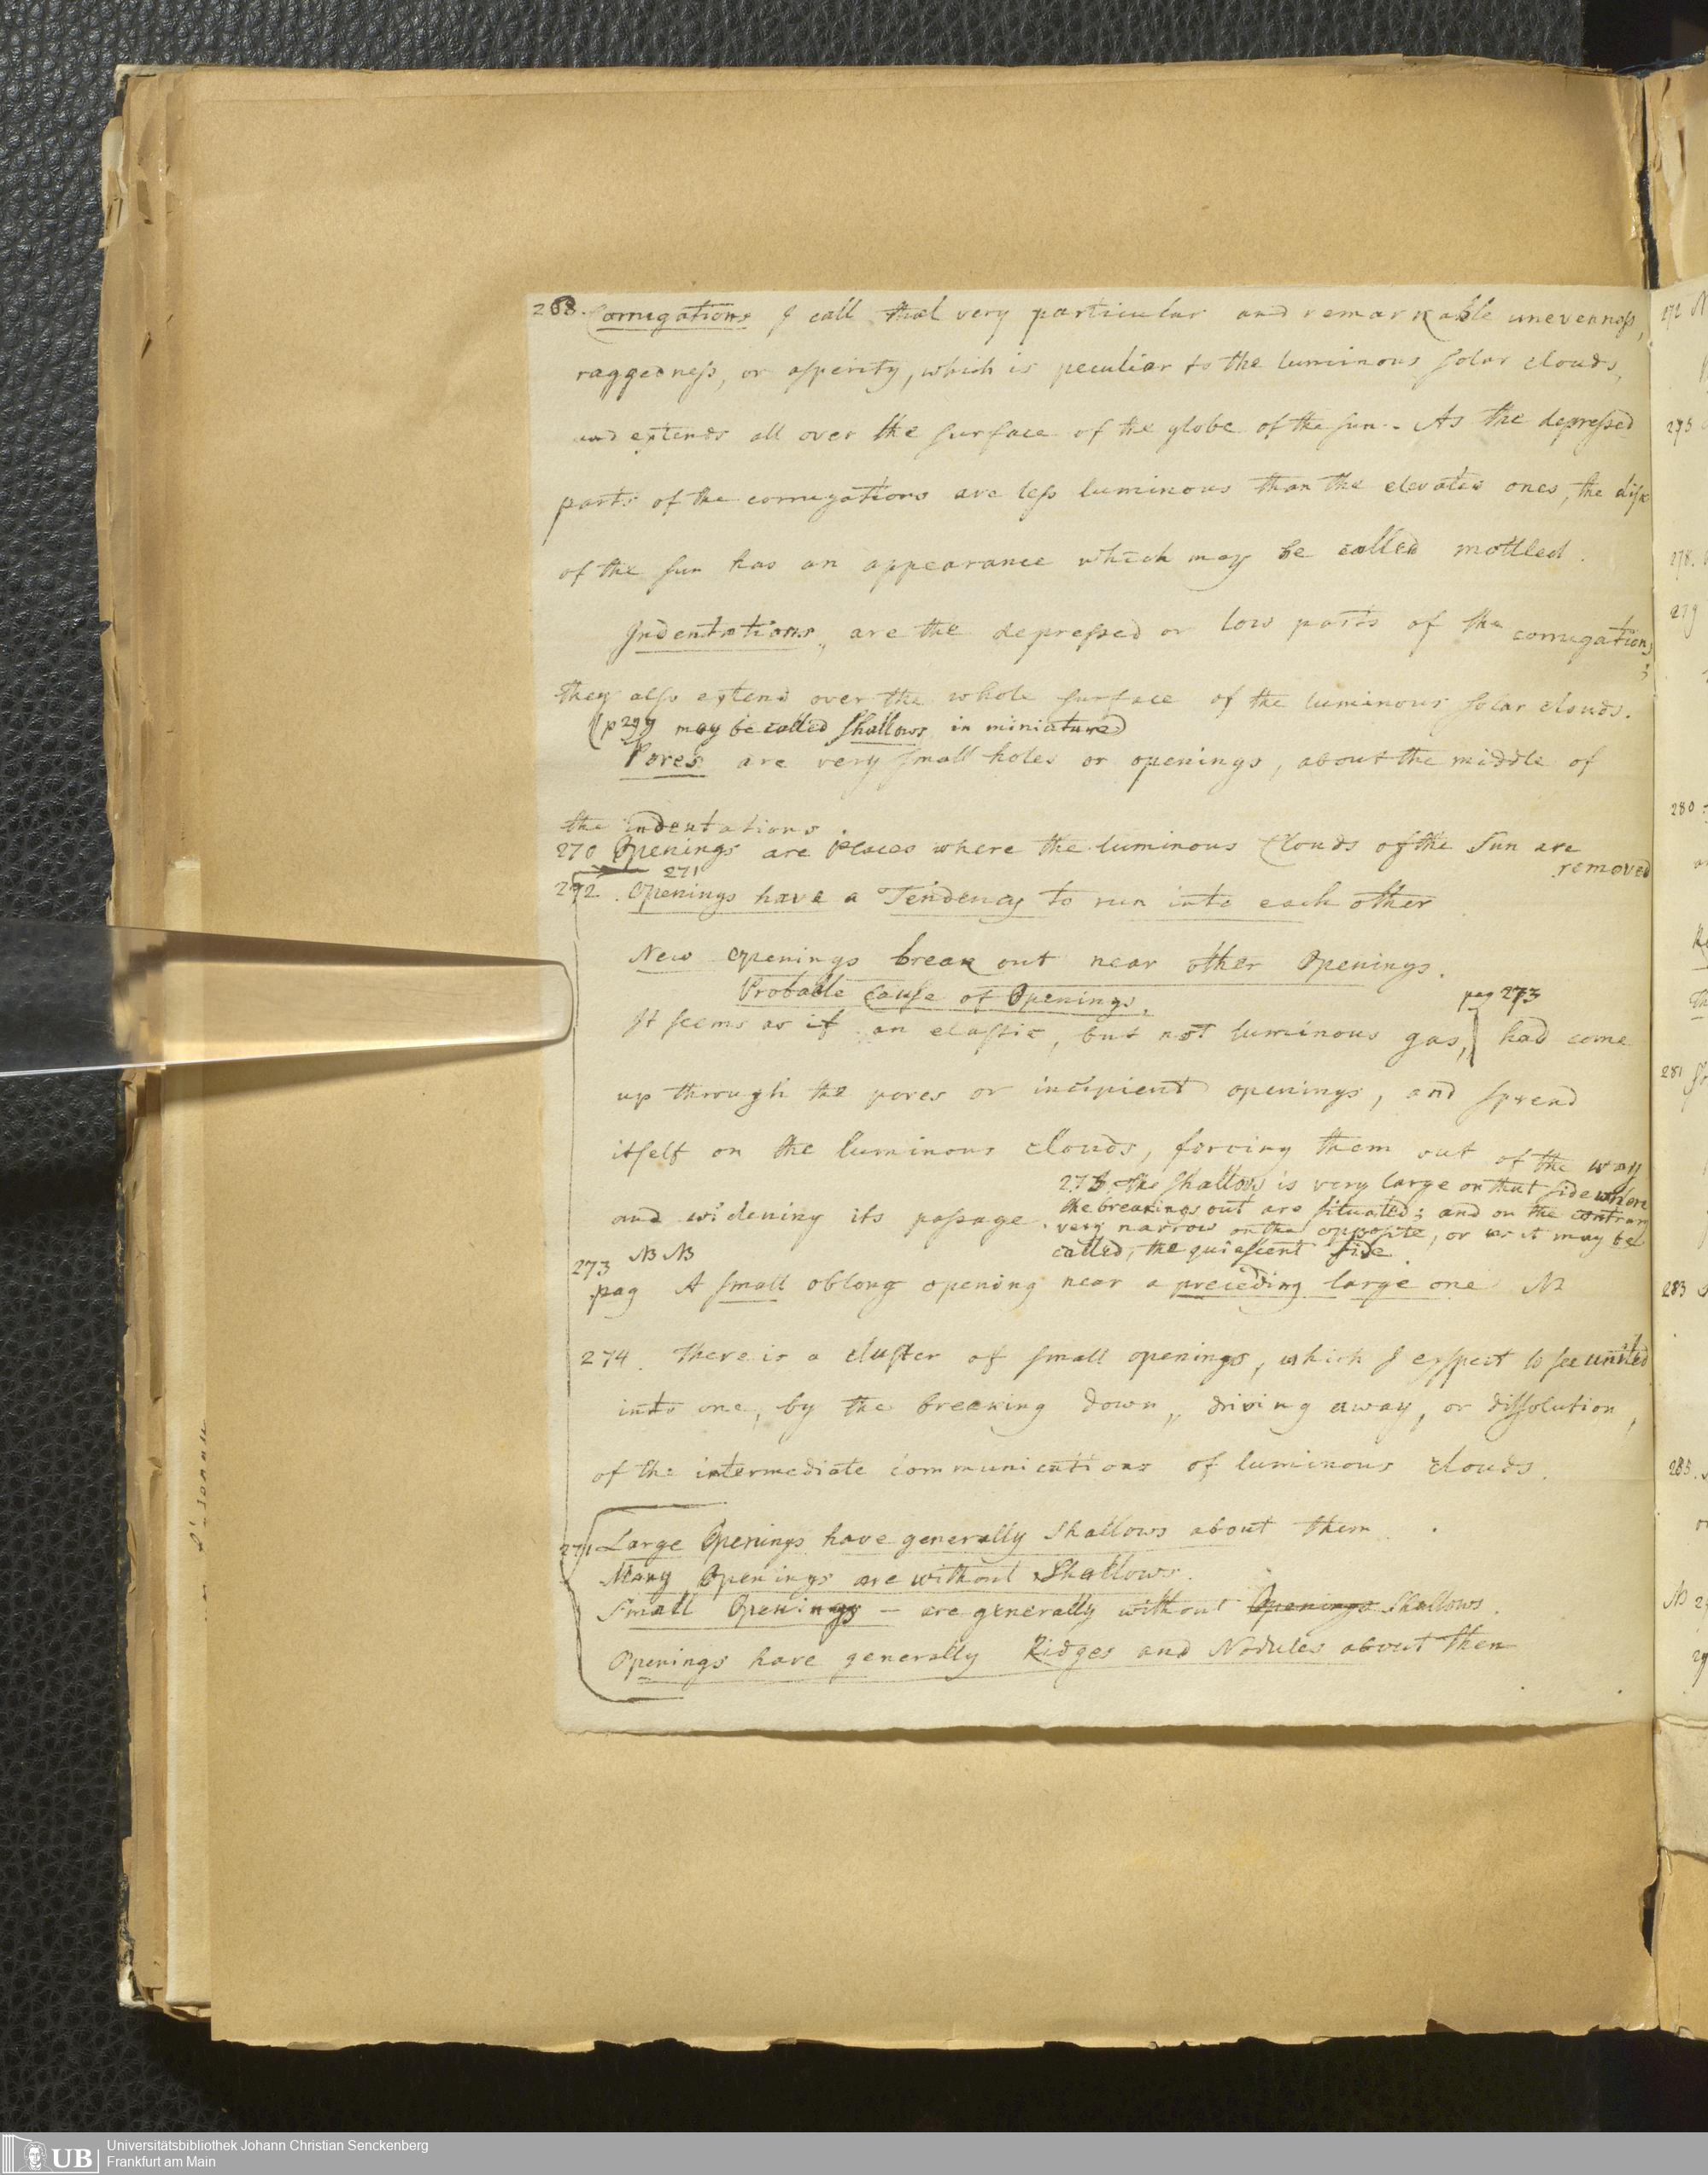 268. Corrugations I call that very particular and remarkable unevenneſs,
raggedneſs, or aſperity, which is peculiar to the luminous ſolar clouds,
and extends all over the ſurface of the globe of the ſun. As the depreſsed
parts of the corrugations are leſs luminous than the elevated ones, the diſk
of the ſun has an appearance which may be called mottled.
Indentations, are the depreſsed or low parts of the corrugations;
they alſo extend over the whole ſurface of the luminous ſolar clouds.
(p 299 may be called ſhallows in miniature)
Pores are very ſmall holes or openings, about the middle of
the indentations.
270 Openings are Places where the luminous Clouds of the Sun are
removed
271
272. Openings have a Tendency to run into each other
New openings break out near other Openings.
Probable Cauſe of Openings.
pag 273
It ſeems as if an elaſtic, but not luminous gas, had come
up through the pores or incipient openings, and ſpread
itſelf on the luminous clouds, forcing them out of the way
and widening its paſsage.
275 The ſhallow is very large on that ſide where
the breakings out are ſituated; and on the contrary
very narrow on the opposite, or as it may be
called, the quieſcent ſide.
NB NB
273
pag A ſmall oblong opening near a preceding large one NB
274. There is a cluſter of ſmall openings, which I expect to ſee united
into one, by the breaking down, driving away, or diſſolution,
of the intermediate communications of luminous clouds.
271 Large Openings have generally Shallows about them.
Many Openings are without Shallows.
Small Openings - are generally without Openings Shallows.
Openings have generally Ridges and Nodules about them
272 N
275
278.
279
280
281
283
285.
NB 2
UB
Universitätsbibliothek Johann Christian Senckenberg
Frankfurt am Main